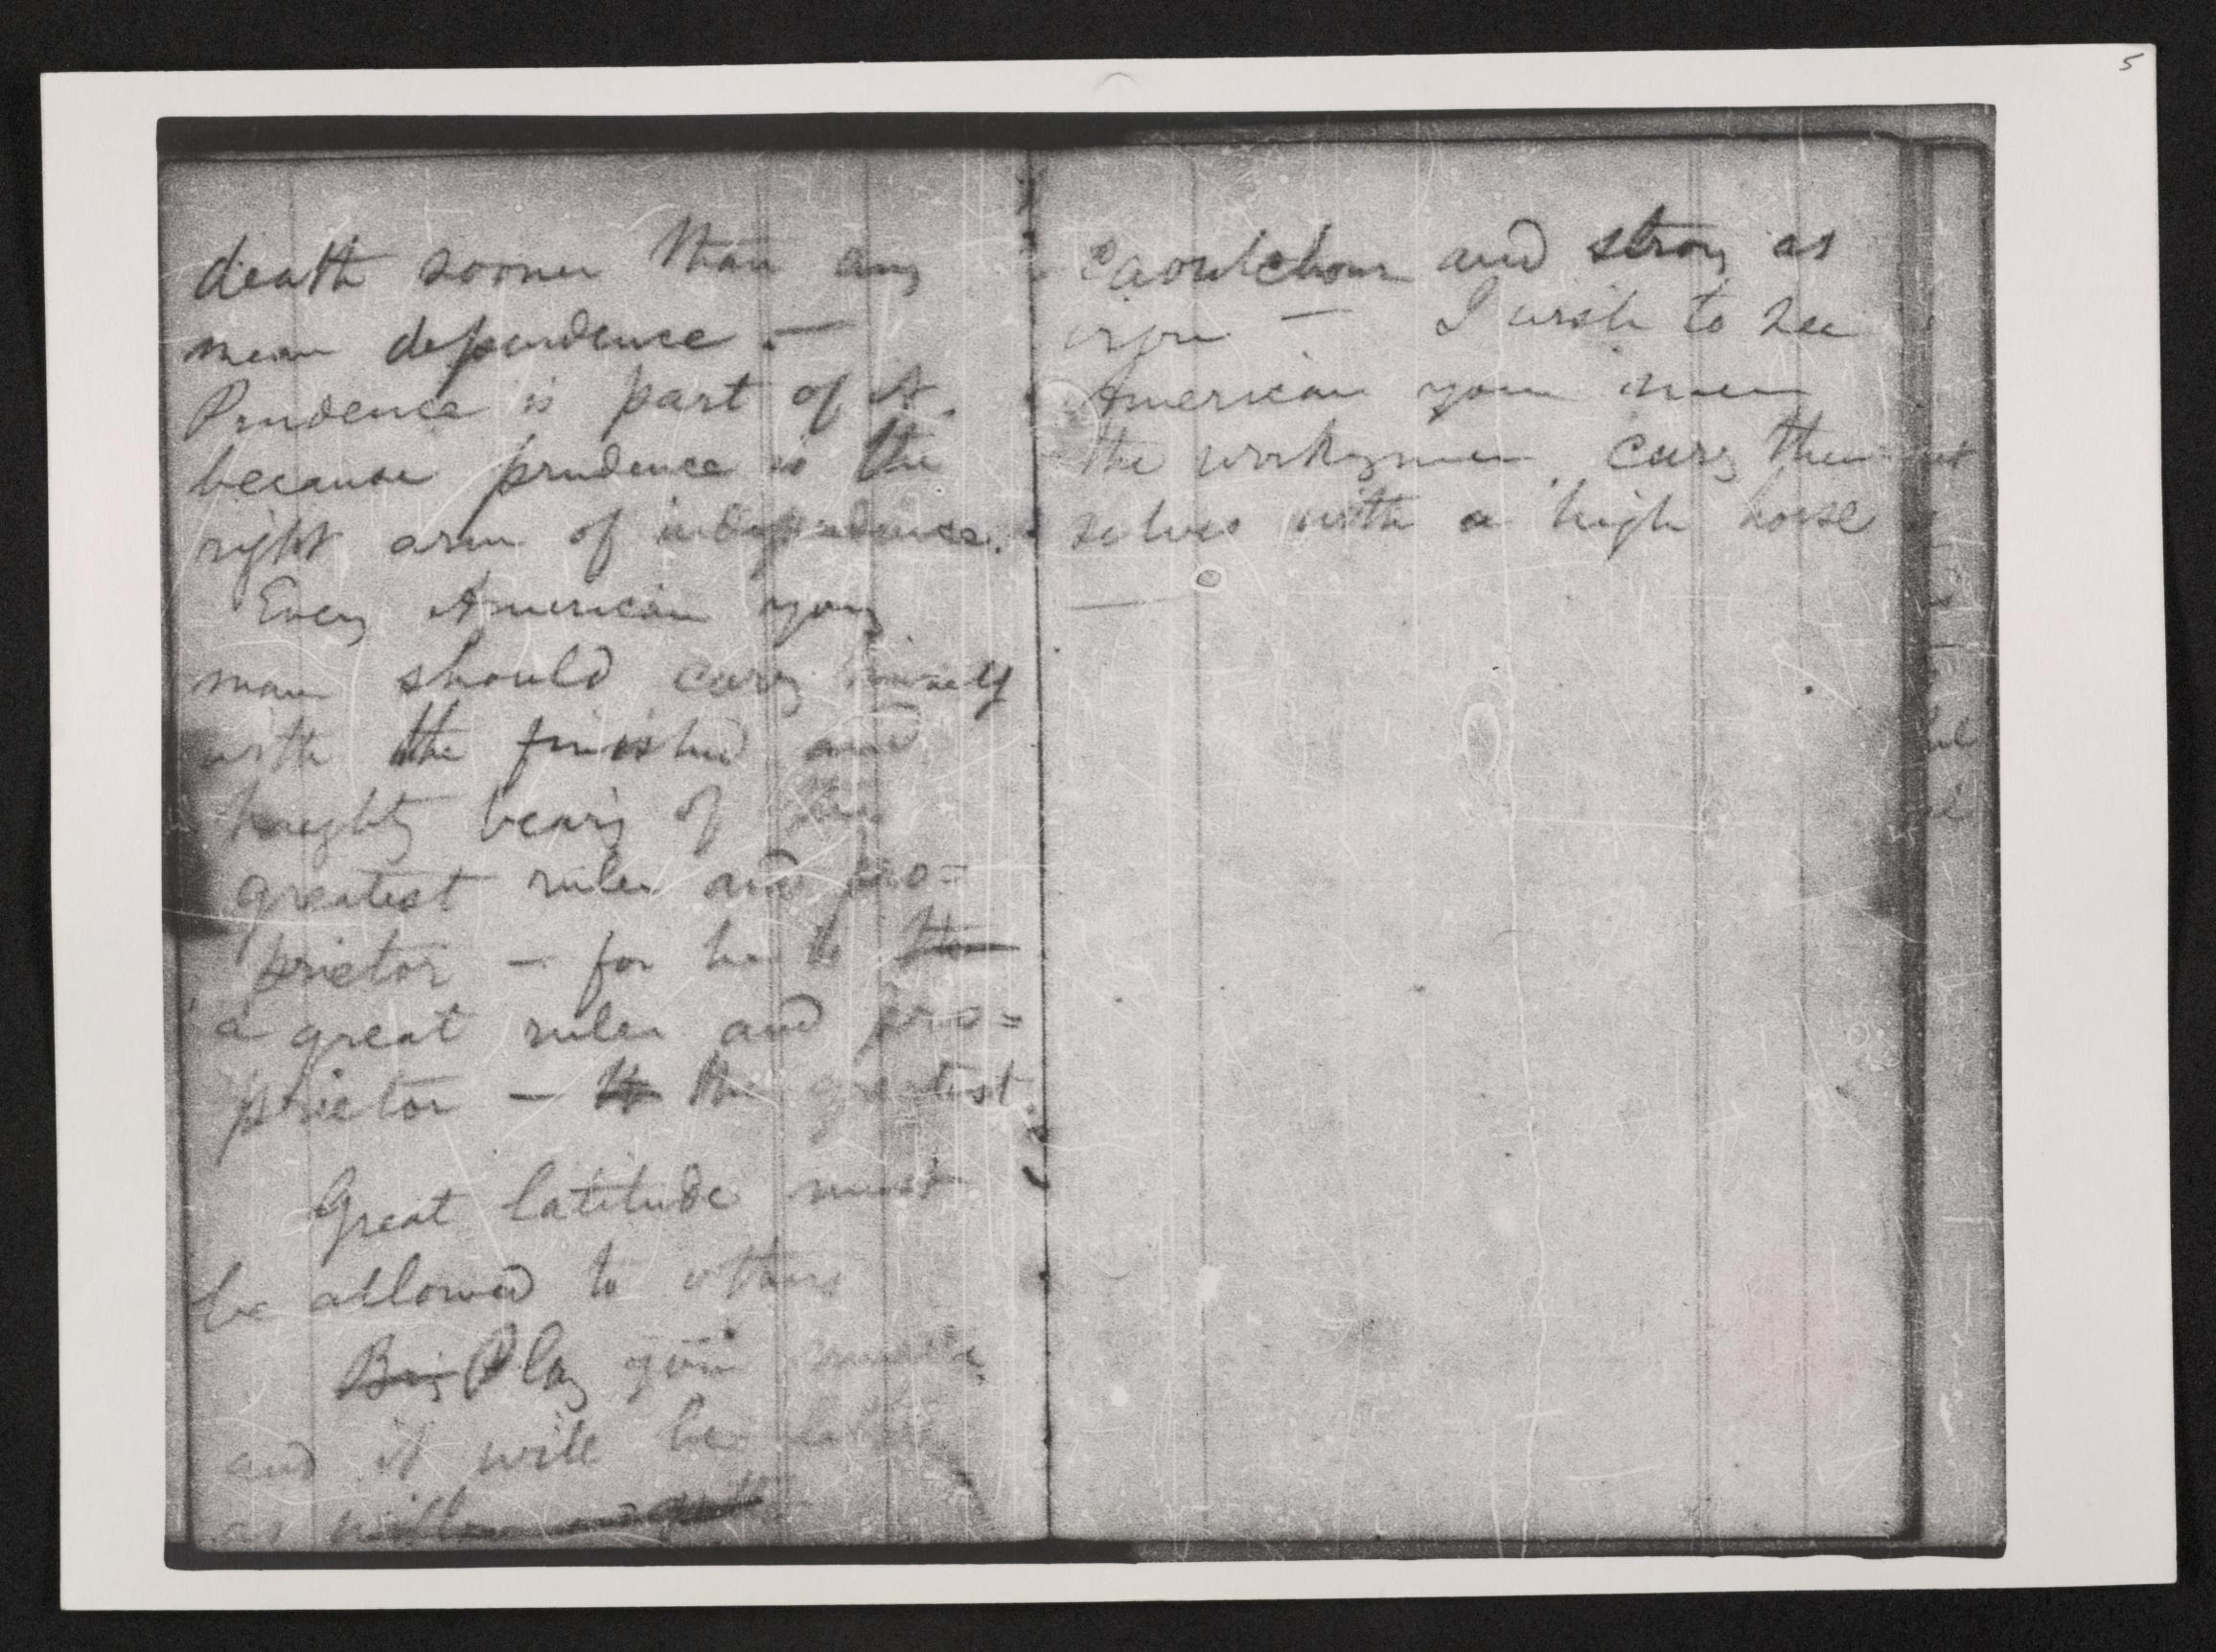 5
death sooner than any
mean dependence. —
Prudence is part of it,
because prudence is the
right arm of independence.
Every American young
man should carry himself
with the finished and
haughty bearing of the
greatest ruler and pro=
prietor — for he is the
a great ruler and pro=
prietor — the greatest.
Great latitude must
be allowed to others
Play your muscle,
and it will be lithe
as willow
Caoutchouc and strong as
iron — I wish to see
American young men
the workingmen, carry them
selves with a high horse